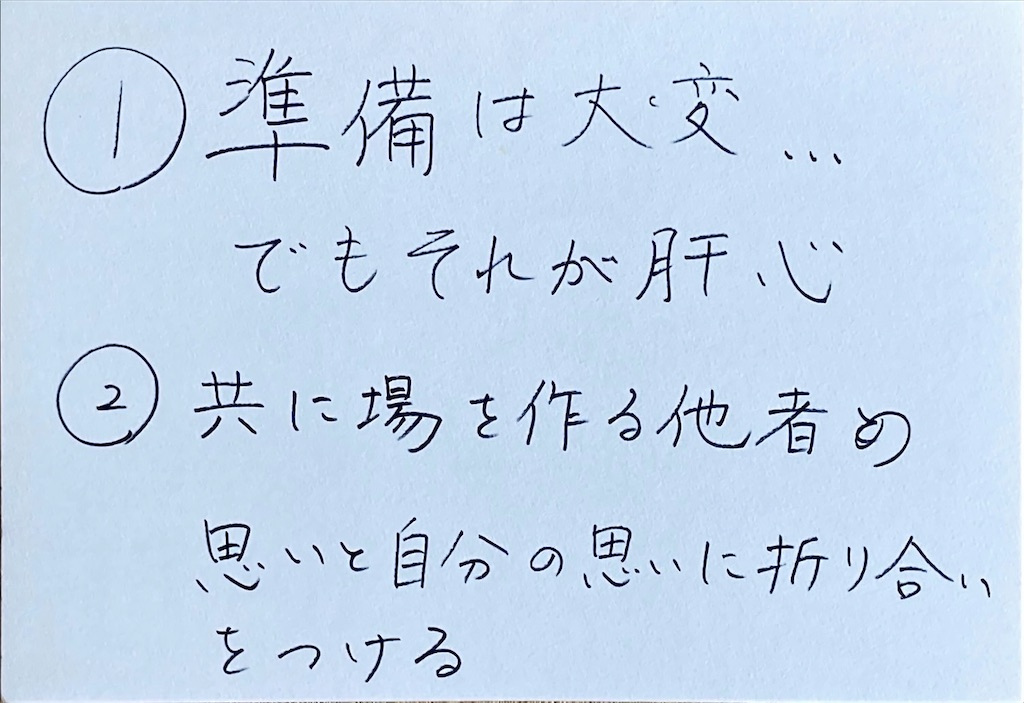 ① 準備は大変...
でもそれが肝心
② 共に場を作る他者の
思いと自分の思いに折り合い
をつける